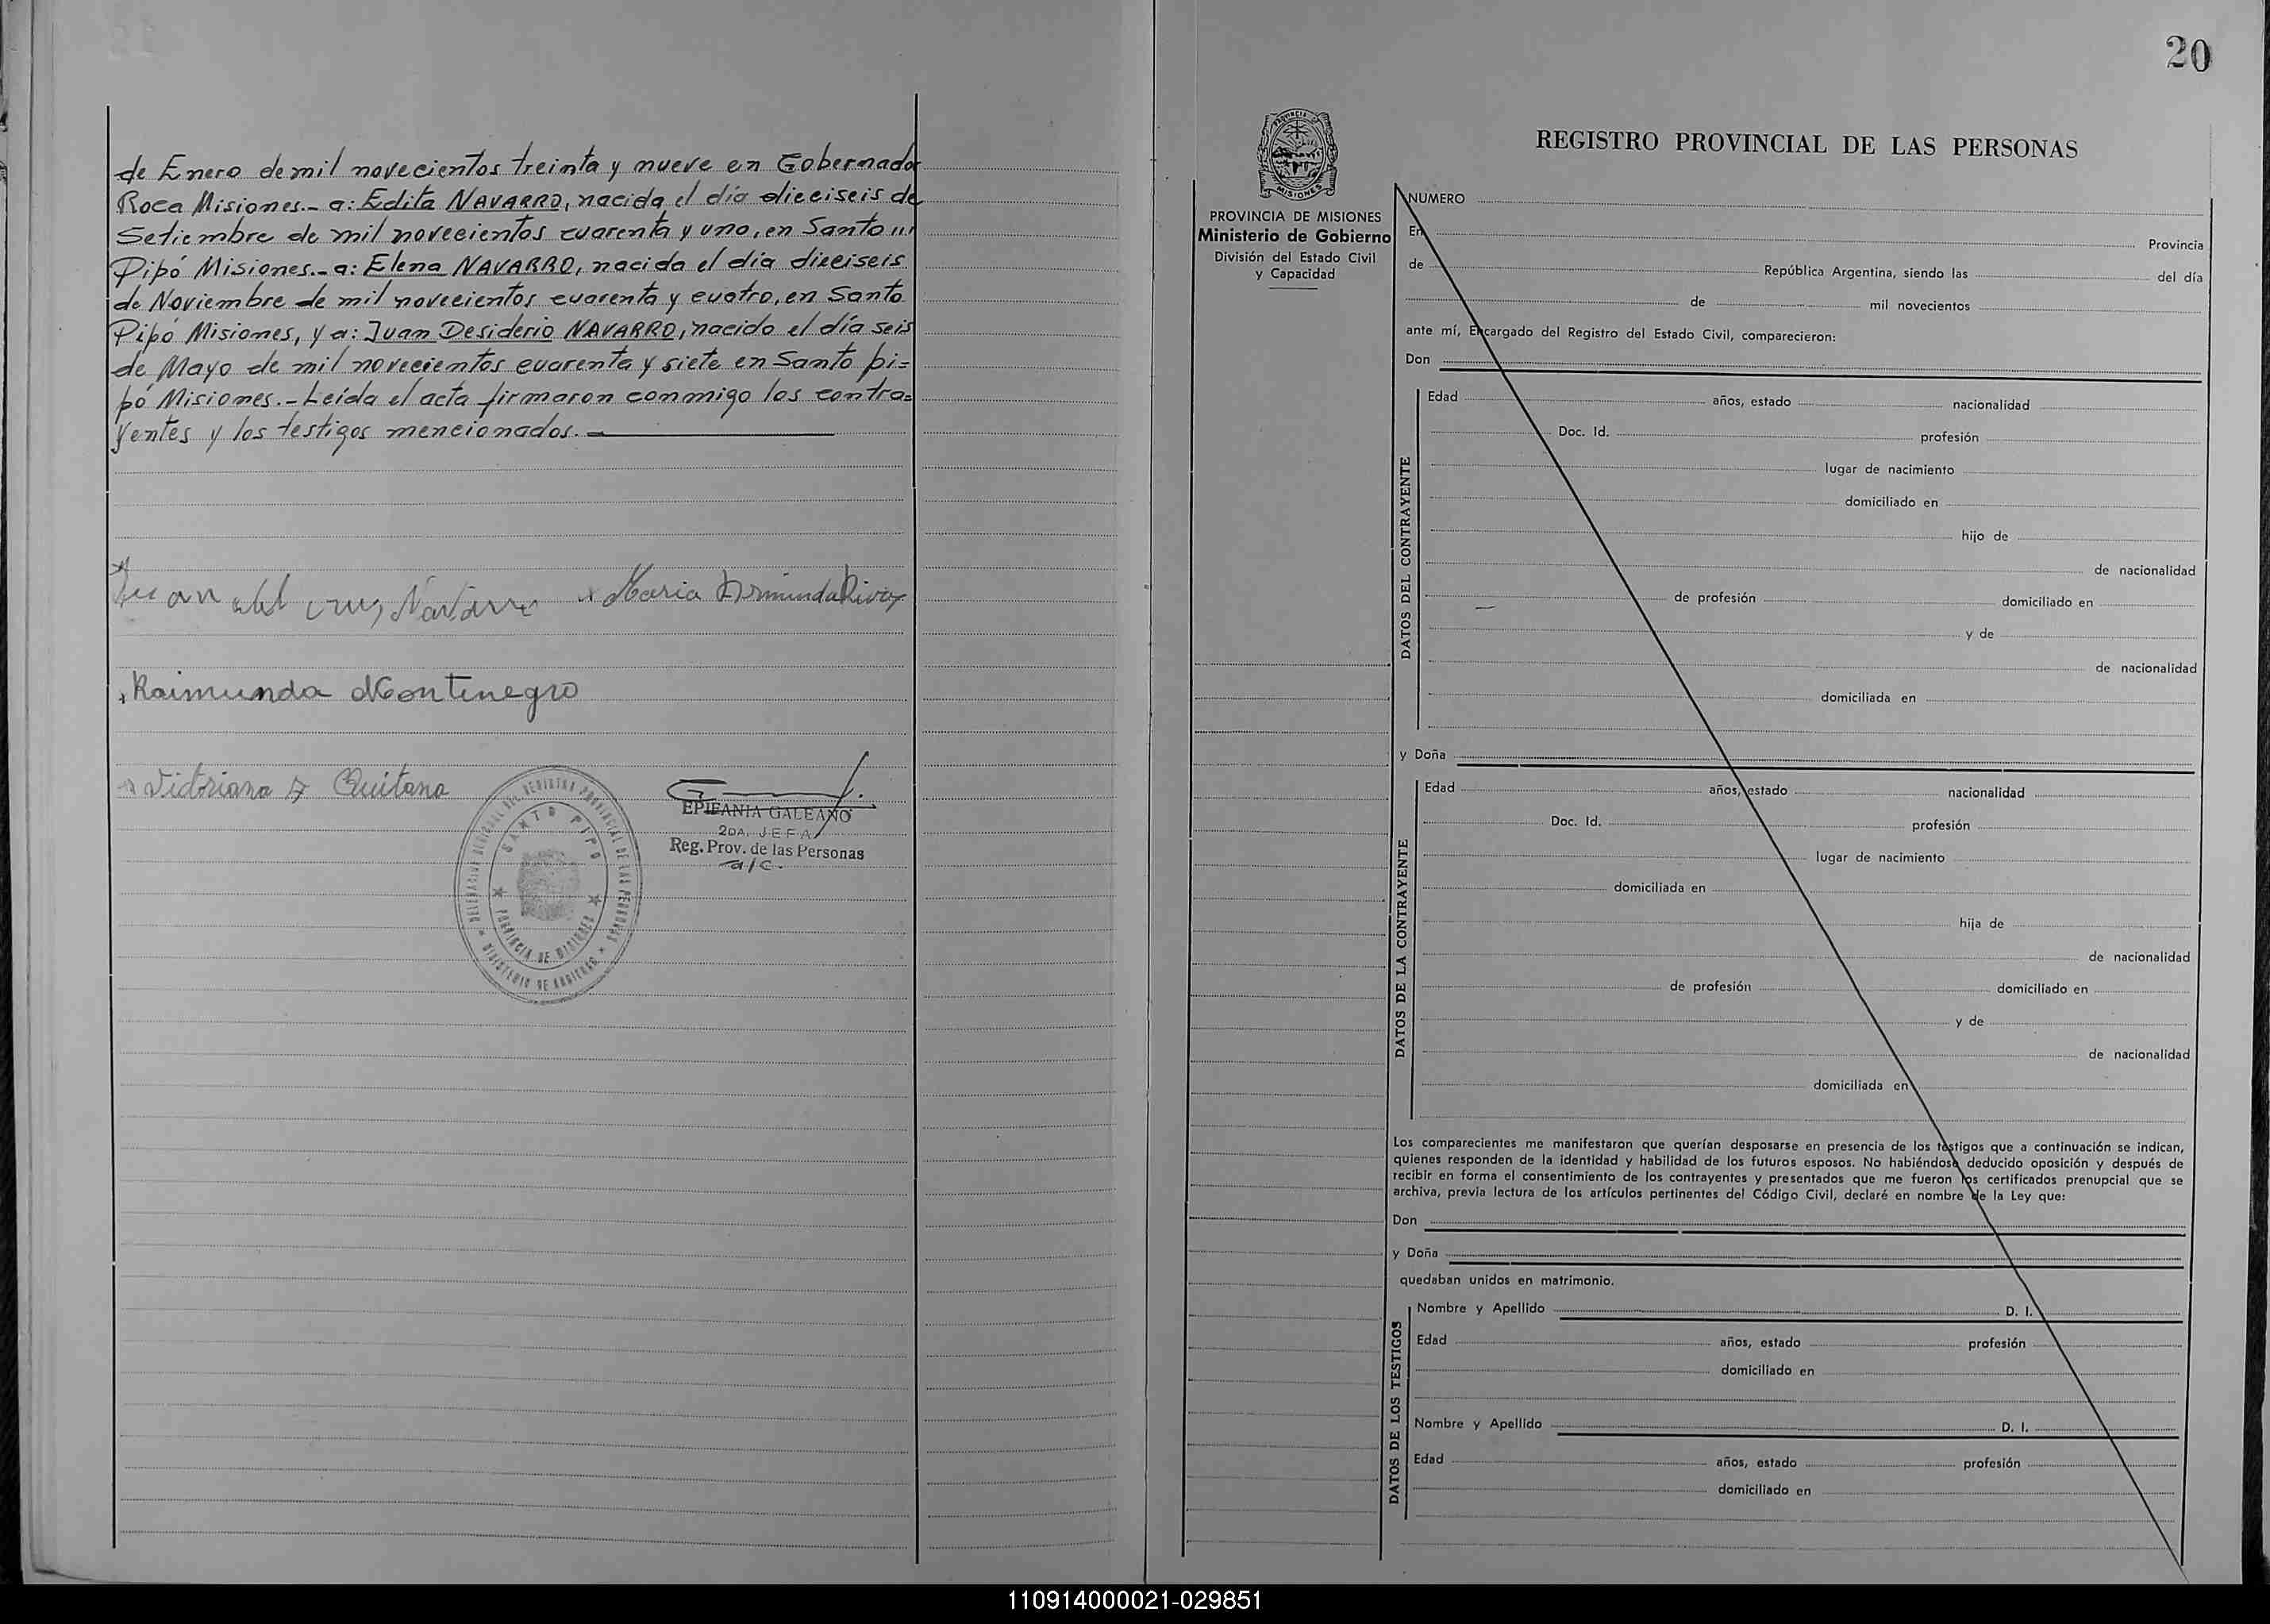 de Enero de mil novecientos treinta y nueve en Gobernador
Roca Misiones.- a: Edita NAVARRO, nacida el día dieciseis de
Setiembre de mil novecientos cuarenta y uno, en Santo
Pipó Misiones.- a: Elena NAVARRO, nacida el día dieciseis
de Noviembre de mil novecientos cuarenta y cuatro, en Santo
Pipó Misiones, y a: Juan Desiderio NAVARRO, nacido el día seis
de Mayo de mil novecientos cuarenta y siete en Santo Pi=
pó Misiones.- Leída el acta firmaron conmigo los contra=
yentes y los testigos mencionados.-
Juan del Cruz Navarro
Maria Arminda
Raimunda Montenegro
Victoriana Quitana
DELEGACION DEL REGISTRO PROVINCIAL DE LAS PERSONAS
SANTO PIPO
PROVINCIA DE MISIONES
MINISTERIO DE GOBIERNO
EPIFANIA GALEANO
2DA. JEFA
Reg. Prov. de las Personas
a/c.
20
PROVINCIA DE MISIONES
Ministerio de Gobierno
División del Estado Civil
y Capacidad
REGISTRO PROVINCIAL DE LAS PERSONAS
NUMERO
En Provincia
de República Argentina, siendo las del día
de mil novecientos
ante mí, Encargado del Registro del Estado Civil, comparecieron:
Don
DATOS DEL CONTRAYENTE
Edad años, estado nacionalidad
Doc. Id. profesión
lugar de nacimiento
domiciliado en
hijo de
de nacionalidad
de profesión domiciliado en
y de
de nacionalidad
domiciliada en
y Doña
DATOS DE LA CONTRAYENTE
Edad años, estado nacionalidad
Doc. Id. profesión
lugar de nacimiento
domiciliada en
hija de
de nacionalidad
de profesión domiciliado en
y de
de nacionalidad
domiciliada en
Los comparecientes me manifestaron que querían desposarse en presencia de los testigos que a continuación se indican,
quienes responden de la identidad y habilidad de los futuros esposos. No habiéndose deducido oposición y después de
recibir en forma el consentimiento de los contrayentes y presentados que me fueron los certificados prenupcial que se
archiva, previa lectura de los artículos pertinentes del Código Civil, declaré en nombre de la Ley que:
Don
y Doña
quedaban unidos en matrimonio.
DATOS DE LOS TESTIGOS
Nombre y Apellido D. I.
Edad años, estado profesión
domiciliado en
Nombre y Apellido D. I.
Edad años, estado profesión
domiciliado en
110914000021-029851